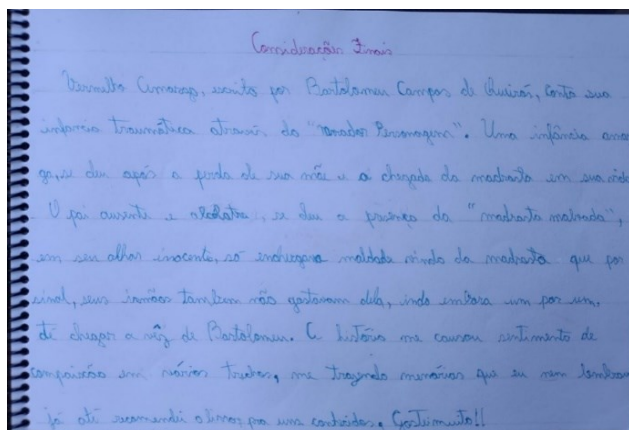 Considerações Finais
Vermelho Amargo, escrito por Bartolomeu Campos de Queirós, conta sua
infancia traumática através do "narrador Personagem". Uma infância amar
ga, se deu após a perda de sua mãe e a chegada da madrasta em sua vida
O pai ausente e alcolatra, se deu a presença da "madrasta malvada",
em seu olhar inocente, só enchergava maldade vindo da madrasta que por
sinal, seus irmãos tambem não gostavam dela, indo embora um por um,
té chegar a vêz de Bartolomeu. A história me causou sentimento de
compaixão em vários trechos, me trazendo memórias que eu nem lembrav
já até recomendei o livro, pra uns conhecidos. Gostei muito!!